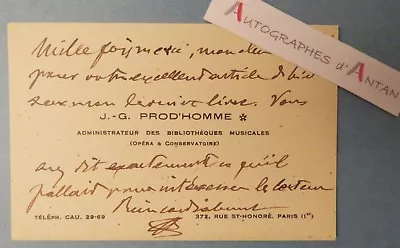 AUTOGRAPHES d'ANTAN
Mille fois merci, mon cher
pour votre excellent article
livre. Vous
J.-G. PROD'HOMME
ADMINISTRATEUR DES BIBLIOTHÈQUES MUSICALES
(OPÉRA & CONSERVATOIRE)
avez dit exactement ce qu'il
fallait pour intéresser le lecteur
Bien cordialement
TÉLÉPH. CAU. 29-69
372, RUE ST-HONORÉ, PARIS (Ier)